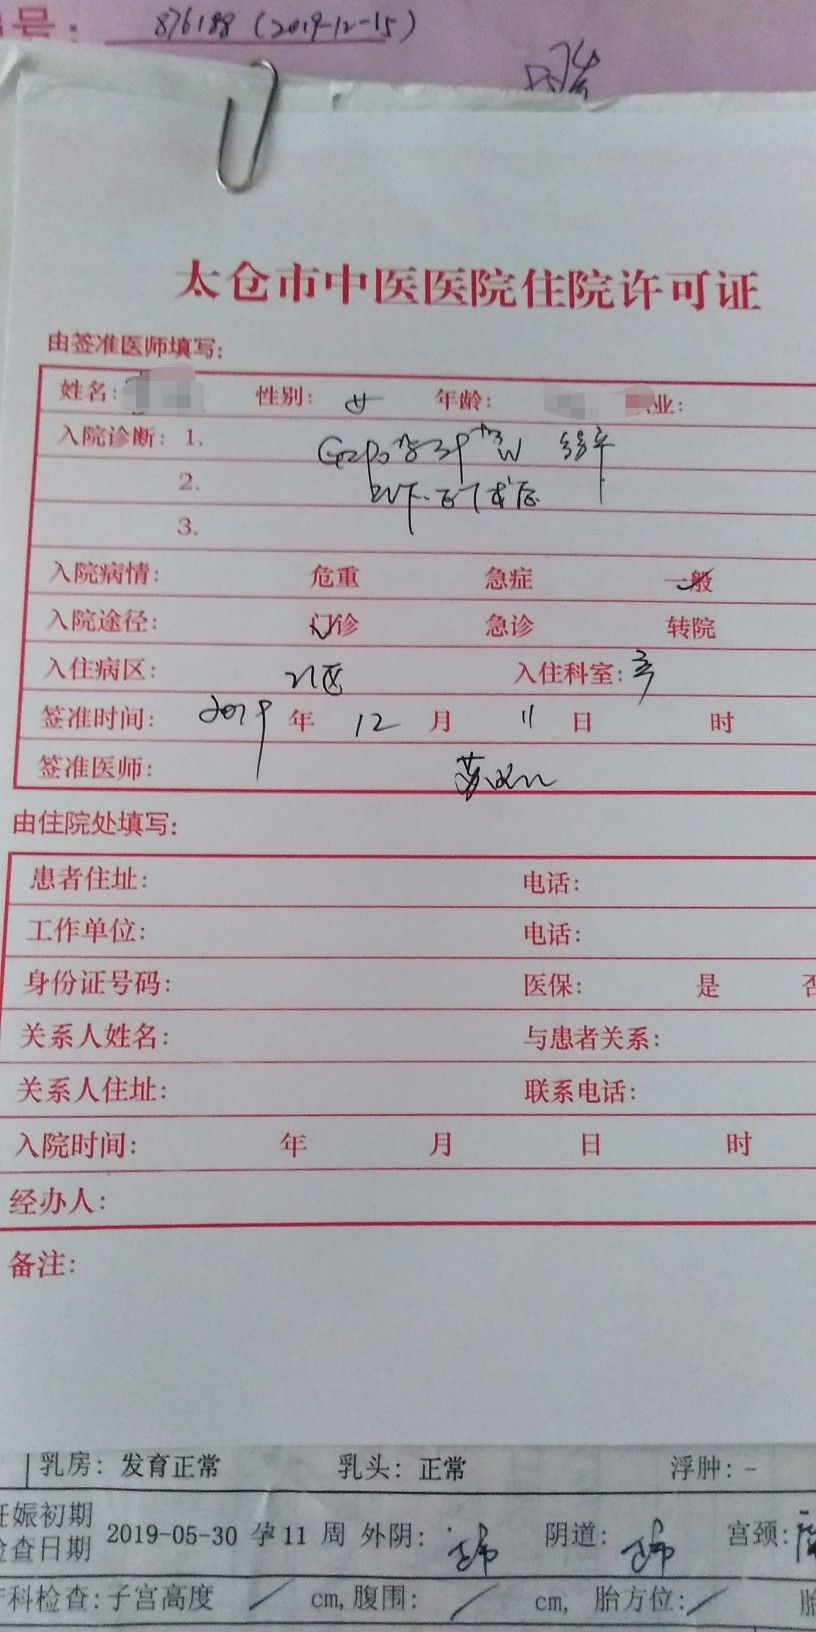 号: 876188 (2019-12-15)
太仓市中医医院住院许可证
由签准医师填写:
姓名: 性别: 女 年龄: 业:
入院诊断: 1. G2P0孕3
2.
3.
入院病情: 危重 急症 一般
入院途径: 门诊 急诊 转院
入住病区: 21区 入住科室:
签准时间: 2019 年 12 月 11 日 时
签准医师:
由住院处填写:
患者住址: 电话:
工作单位: 电话:
身份证号码: 医保: 是 否
关系人姓名: 与患者关系:
关系人住址: 联系电话:
入院时间: 年 月 日 时
经办人:
备注:
乳房: 发育正常 乳头: 正常 浮肿: -
妊娠初期
检查日期 2019-05-30 孕11 周 外阴: 阴道: 宫颈:
产科检查: 子宫高度 / cm, 腹围: / cm, 胎方位: / 胎